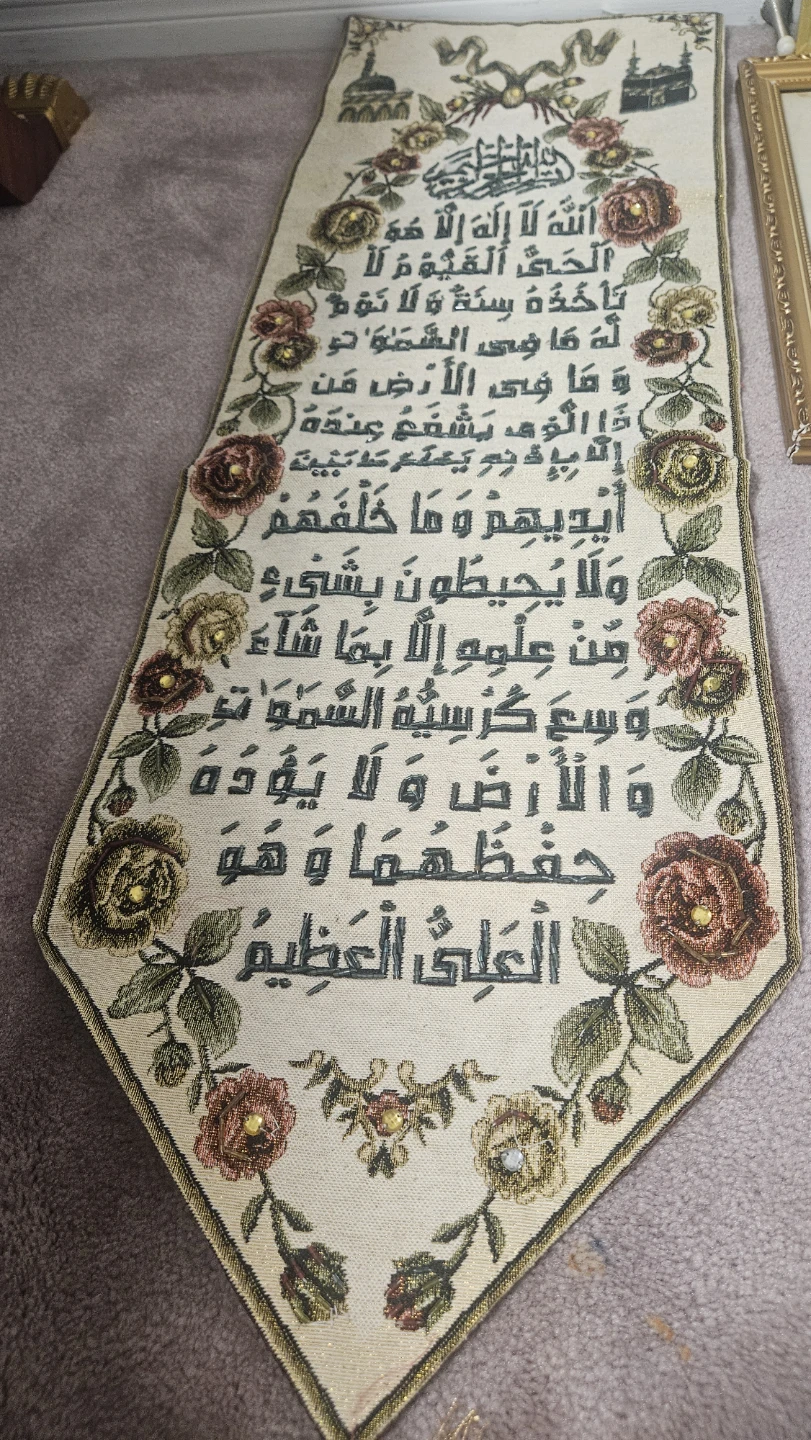 بسم الله الرحمن الرحيم
اَللّٰهُ لَا إِلٰهَ إِلَّا هُوَ
الْحَىُّ الْقَيُّوْمُ لَا
تَأْخُذُهُ سِنَةٌ وَلَا نَوْمٌ
لَهُ مَا فِى السَّمٰوٰتِ
وَ مَا فِى الْأَرْضِ مَن
ذَا الَّذِى يَشْفَعُ عِندَهُ
إِلَّا بِإِذْنِهِ يَعْلَمُ مَا بَيْنَ
أَيْدِيهِمْ وَ مَا خَلْفَهُمْ
وَلَا يُحِيطُونَ بِشَىْءٍ
مِّنْ عِلْمِهِ إِلَّا بِمَا شَآءَ
وَسِعَ كُرْسِيُّهُ السَّمٰوٰتِ
وَ الْأَرْضَ وَ لَا يَؤُدُهُ
حِفْظُهُمَا وَ هُوَ
الْعَلِىُّ الْعَظِيمُ